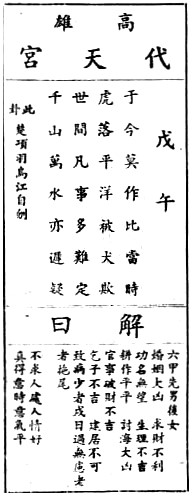 高雄
代天宮
戊午
于今莫作比當時
虎落平洋被犬欺
世間凡事多難定
千山萬水亦遲疑
此卦 楚項羽烏江自刎
解曰
六甲先男後女
婚姻大凶 求財不利
功名無望 生理不吉
耕作平平 討海大凶
官事破財不吉
乞子不吉 建居不可
致病少者戌日過無慮老
者拖尾
不求人處人情好
真得意時意氣平